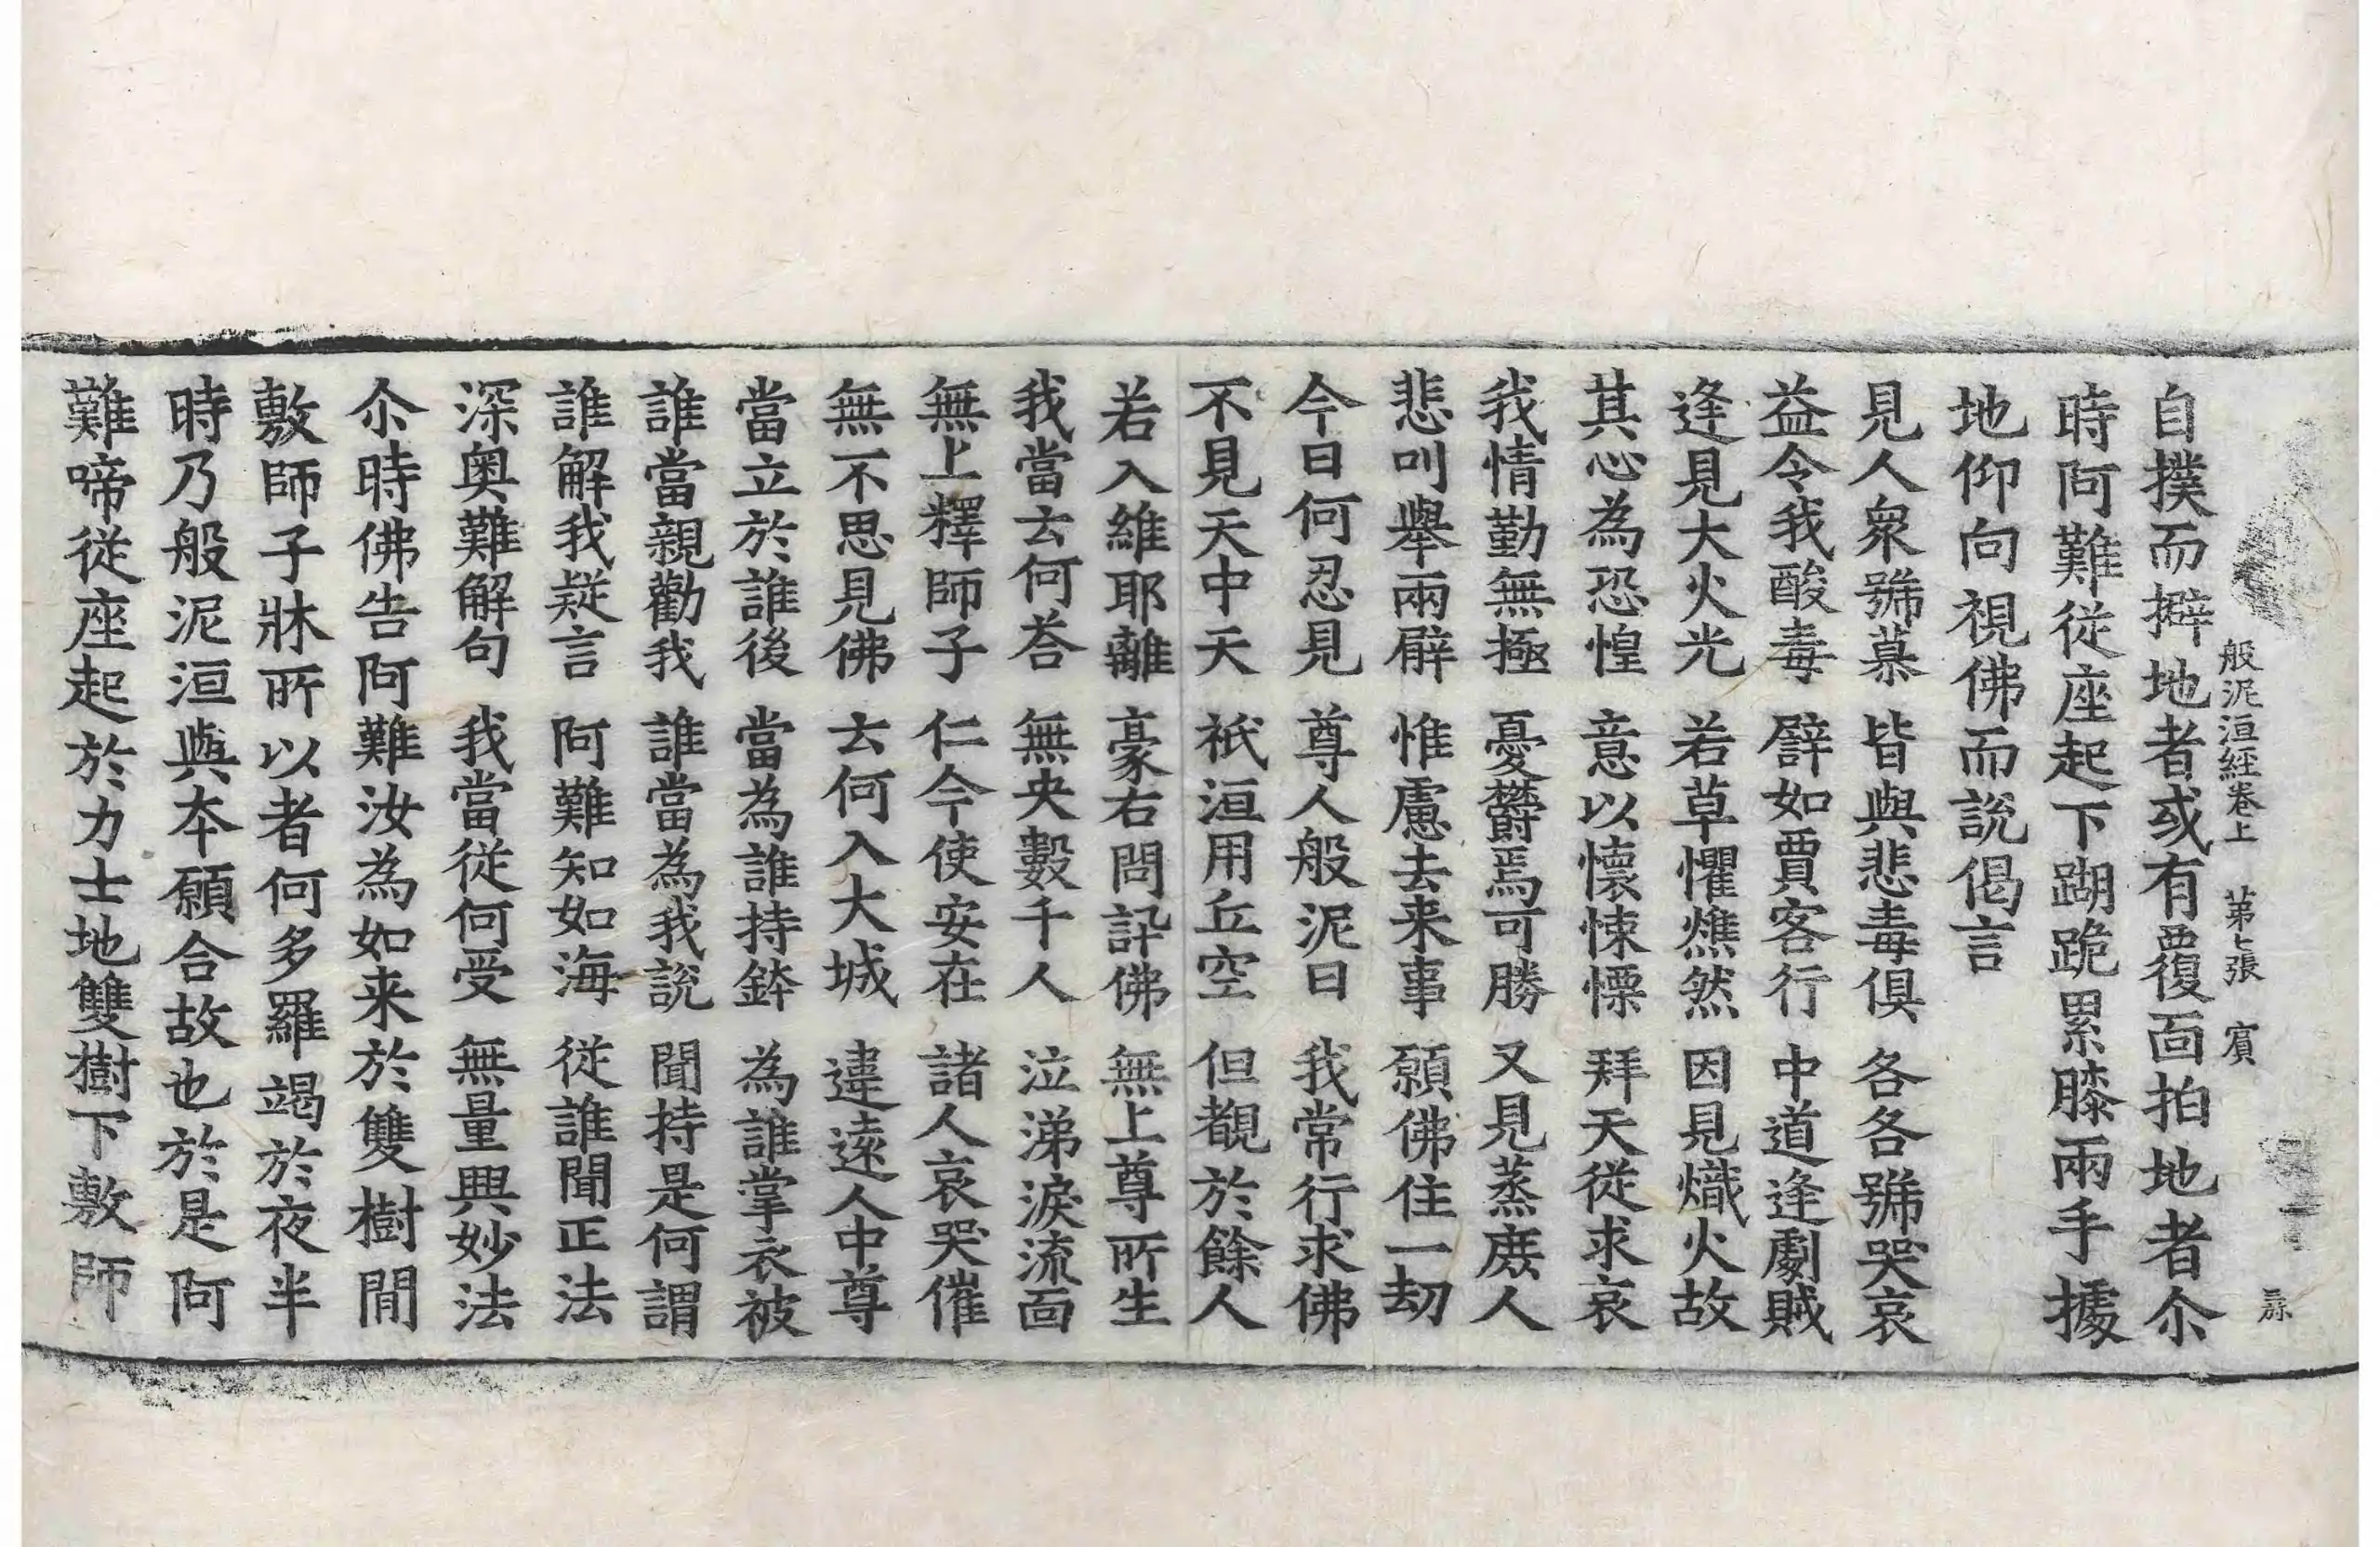 般泥洹経巻上　第七張　賓
自撲而擗地者或有覆面拍地者尒
時阿難従座起下蹦跪累膝兩手據
地仰向視佛而說偈言
見人衆號慕　皆與悲毒俱　各各號哭哀
益令我酸毒　譬如賈客行　中道逢劇賊
逢見大火光　若草懼燋然　因見熾火故
其心為恐惶　意以懷悚慄　拜天従求哀
我情勤無極　憂欝焉可勝　又見蒸庶人
悲叫舉兩臂　惟慮去来事　願佛住一劫
今日何忍見　尊人般泥曰　我常行求佛
不見天中天　祇洹用丘空　但覩於餘人
若入維耶離　豪右問訊佛　無上尊所生
我當云何荅　無央數千人　泣涕淚流面
無上釋師子　仁今使安在　諸人哀哭催
無不思見佛　云何入大城　違遠人中尊
當立於誰後　當為誰持鉢　為誰掌衣被
誰當親勸我　誰當為我說　聞持是何謂
誰解我疑言　阿難知如海　従誰聞正法
深奥難解句　我當従何受　無量興妙法
尒時佛告阿難汝為如来於雙樹間
敷師子牀所以者何多羅竭於夜半
時乃般泥洹與本願合故也於是阿
難啼従座起於力士地雙樹下敷師